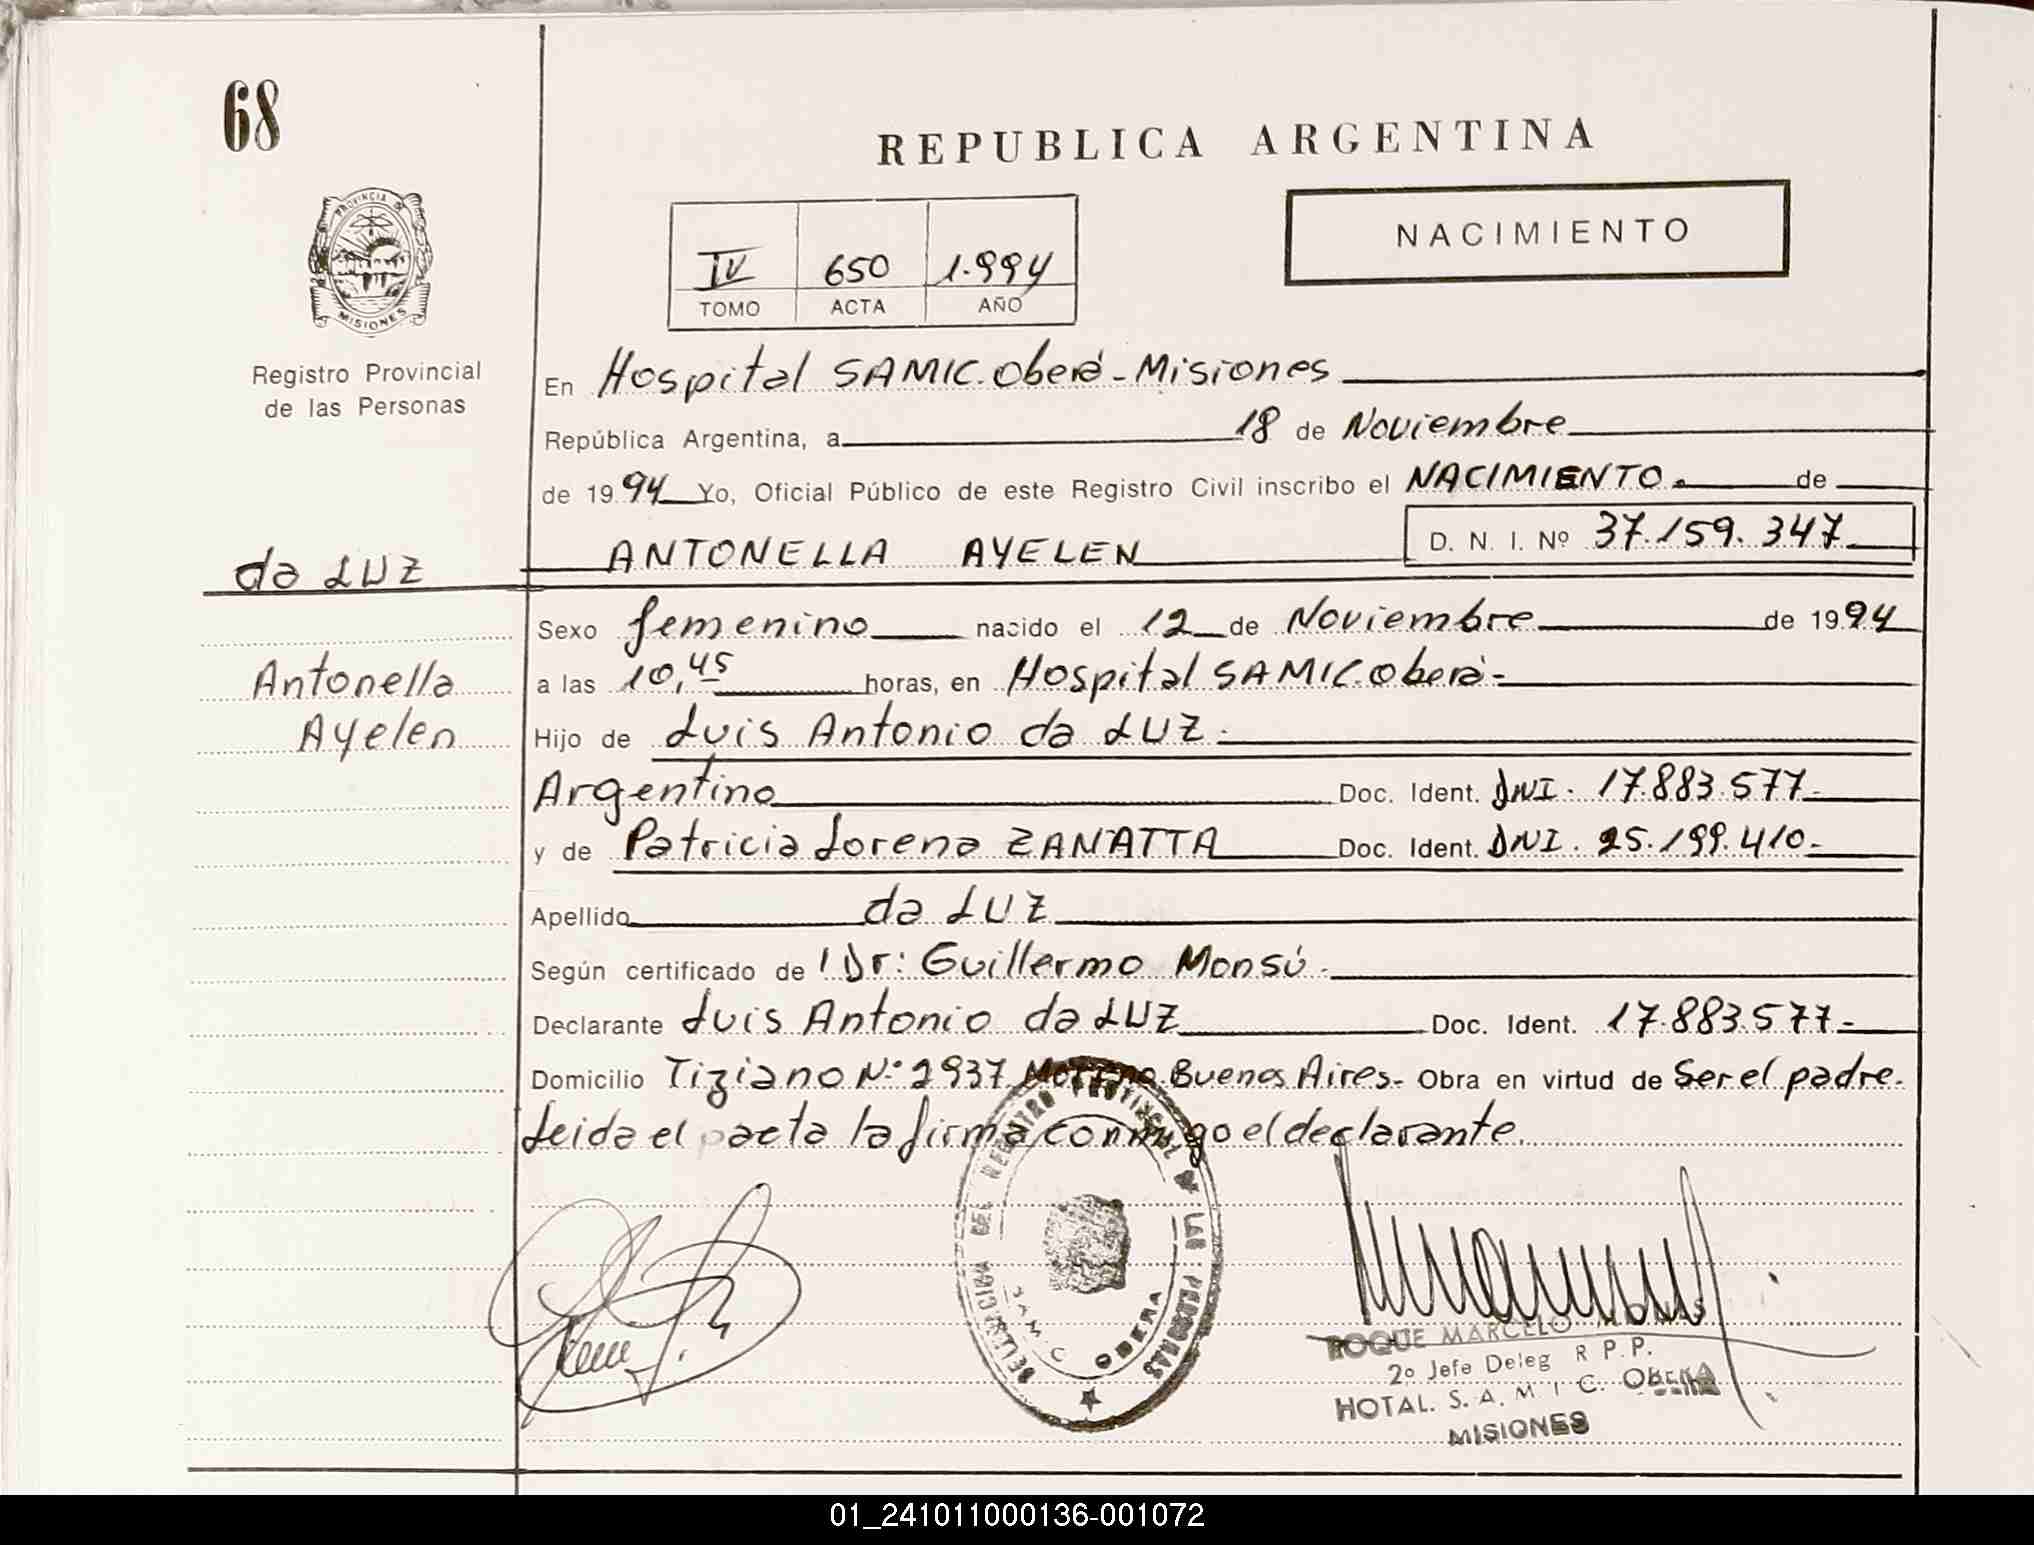 68
REPUBLICA ARGENTINA
PROVINCIA DE
MISIONES
NACIMIENTO
IV 650 1.994
TOMO ACTA AÑO
Registro Provincial
de las Personas
En Hospital SAMIC. Oberá - Misiones
República Argentina, a 18 de Noviembre
de 1994 Yo, Oficial Público de este Registro Civil inscribo el NACIMIENTO. de
ANTONELLA AYELEN D. N. I. Nº 37.159.347
da LUZ
Sexo femenino nacido el 12 de Noviembre de 1994
Antonella
Ayelen
a las 10,45 horas, en Hospital SAMIC. Oberá -
Hijo de Luis Antonio da LUZ.
Argentino Doc. Ident. DNI. 17.883.577-
y de Patricia Lorena ZANATTA Doc. Ident. DNI. 25.199.410-
Apellido da LUZ
Según certificado de Dr: Guillermo Monsú.
Declarante Luis Antonio da LUZ Doc. Ident. 17.883.577-
Domicilio Tiziano Nº 2937 Moreno Buenos Aires- Obra en virtud de Ser el padre.
Leida el acta la firma conmigo el declarante.
DELEGACION DEL REGISTRO PROVINCIAL DE LAS PERSONAS
S.A.M.I.C. OBERA
ROQUE MARCELO
2º Jefe Deleg R P. P.
HOTAL. S. A. M I C. OBERA
MISIONES
01_241011000136-001072